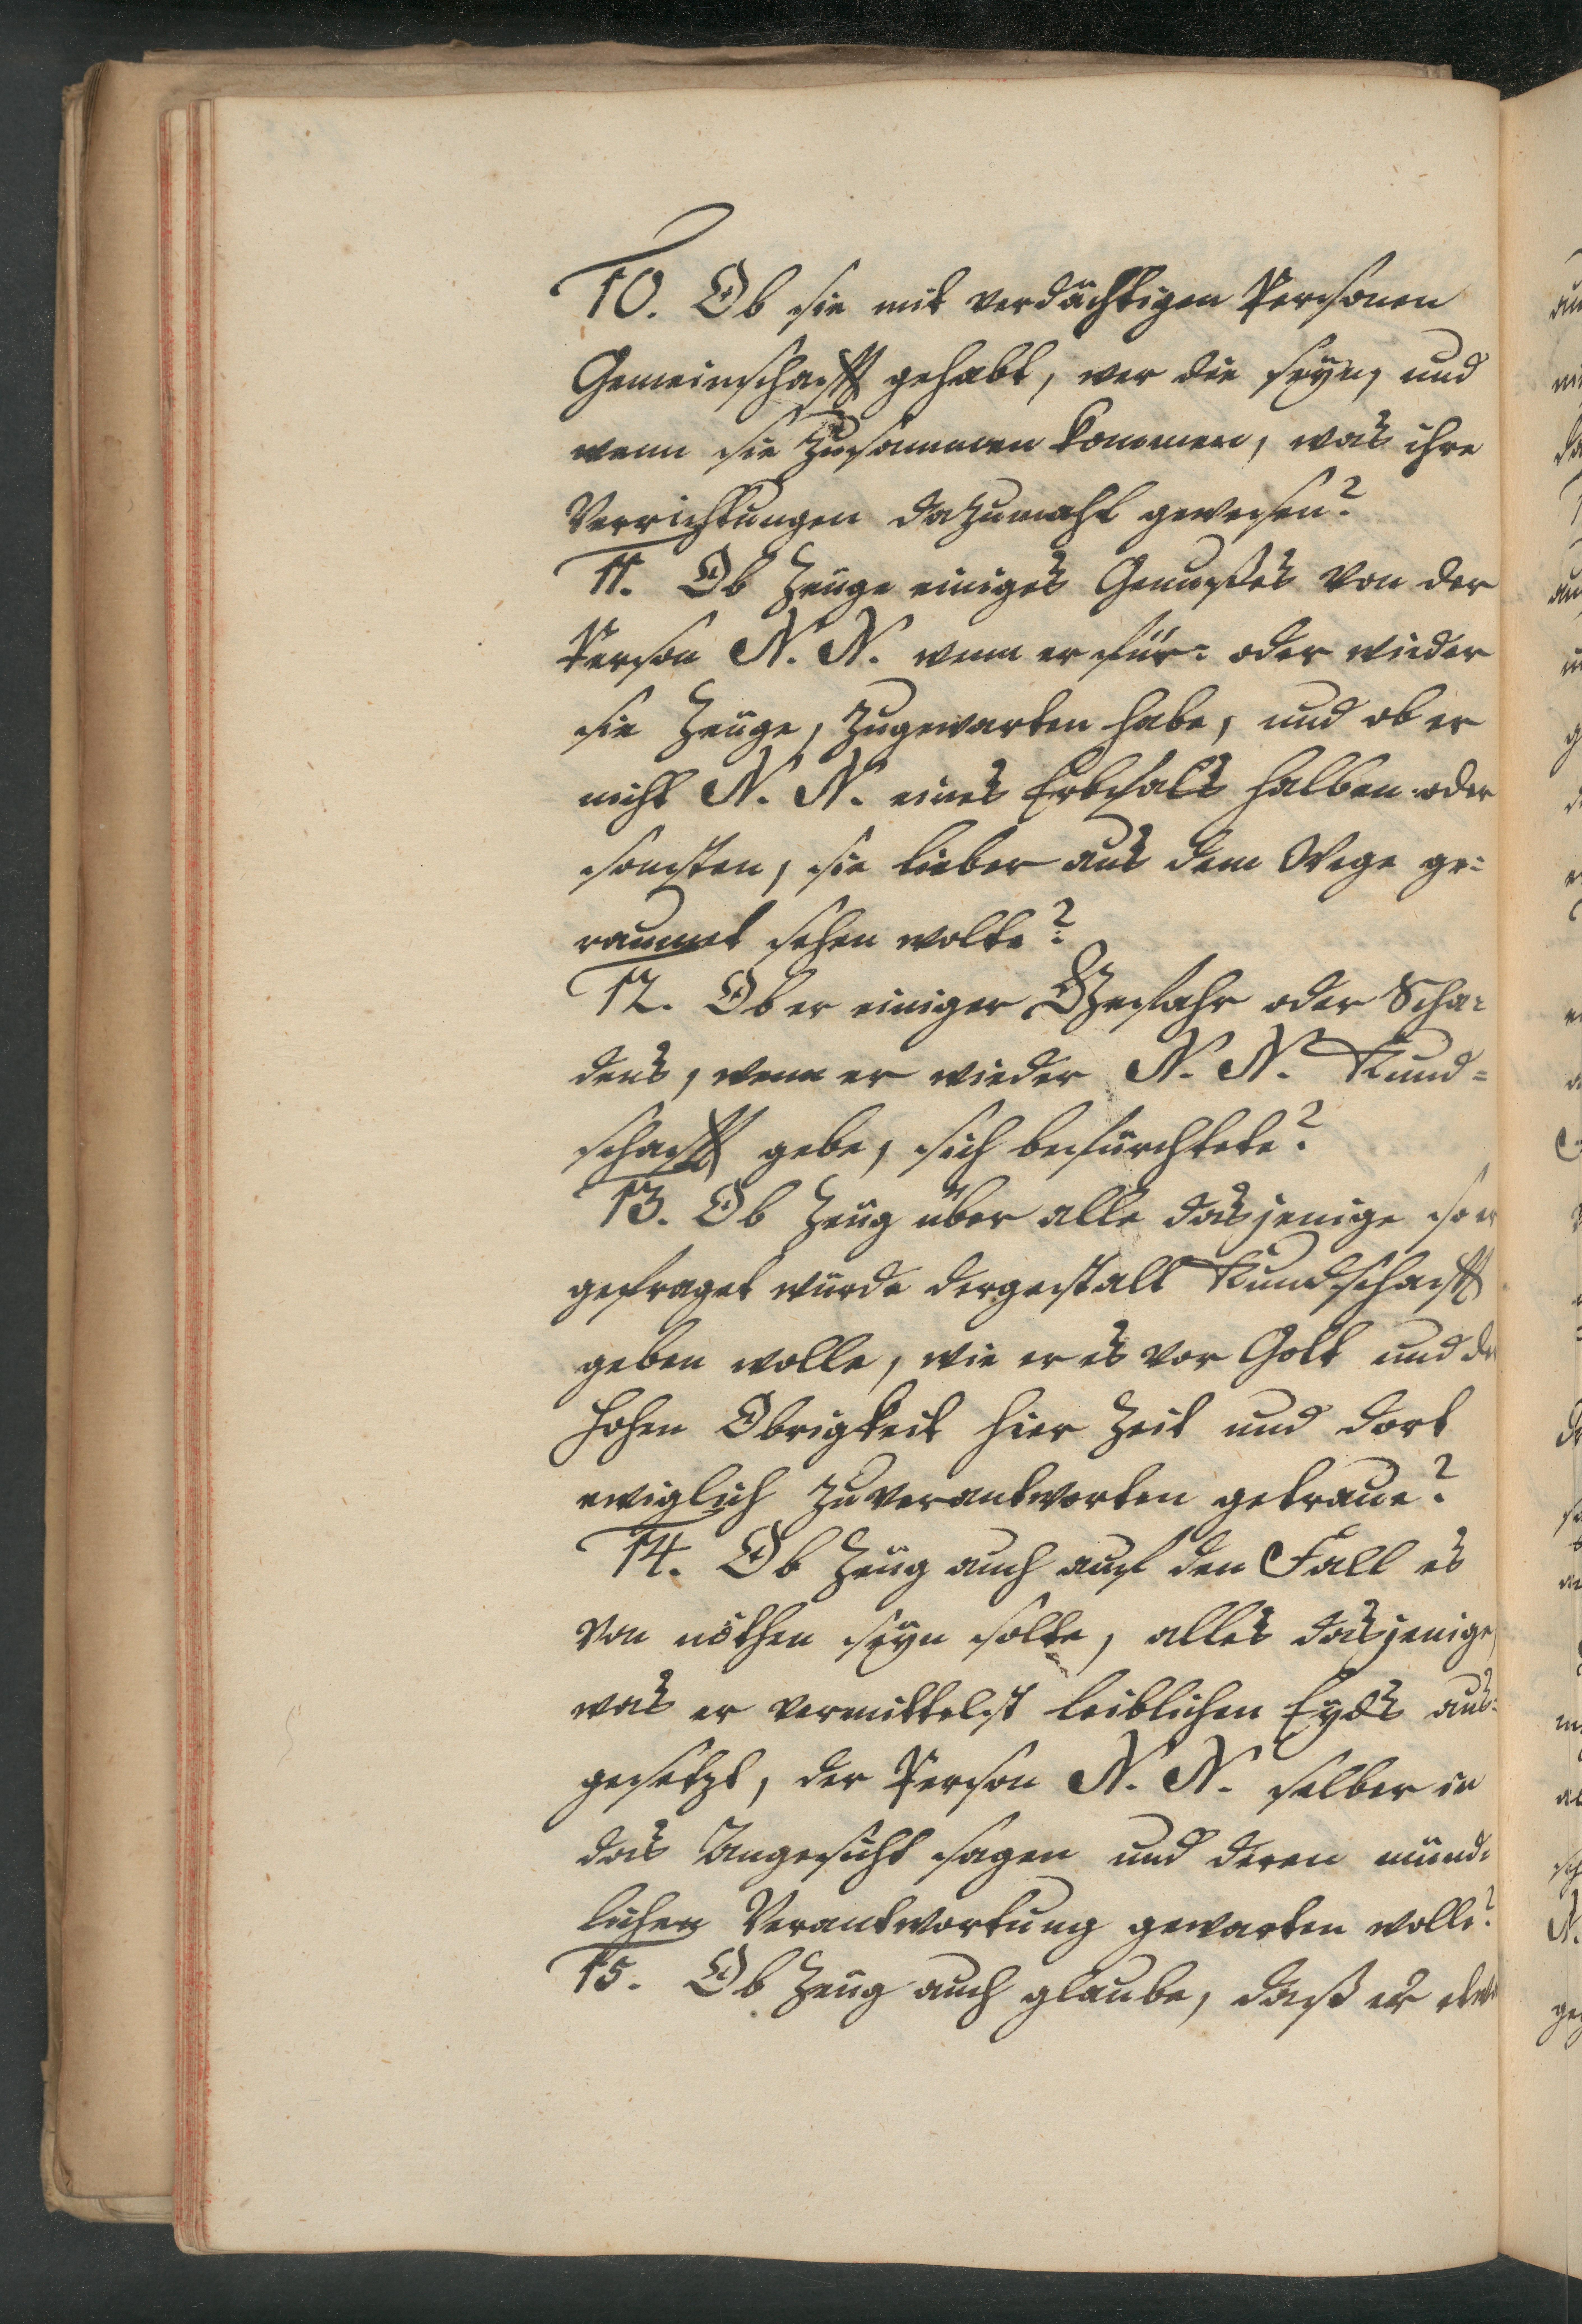 10. Ob sie mit verdächtigen Personen
Gemeinschafft gehabt, wer die seÿn, und
wenn sie zusammen kommen, was ihre
Verrichtungen dazumahl gewesen?
11. Ob Zeuge einiges Genußes von der
Person N. N. wenn er für= oder wieder
sie Zeuge, zugewarten habe, und ob er
nicht N. N. eines Erbfals halben oder
sonsten, sie lieber aus dem Wege ge=
raumet sehen wolte?
12. Ob er einiger Gefahr oder Scha=
dens, wenn er wieder N. N. Kund=
schafft gebe, sich befürchtete?
13. Ob Zeug über alle dasjenige so er
gefraget würde dergestalt Kundschafft
geben wolle, wie er es vor Gott und
hohen Obrigkeit hier Zeit und dort
ewiglich zuverantworten getraue?
14. Ob Zeug auch auf den Fall es
von nöthen seÿn solte, alles dasjenige,
was er vermittelst leiblichen Eyds aus=
gesetzt, der Person N. N. selber in
das Angesicht sagen und deren münd=
lichen Verantwortung gewarten wolle?
15. Ob Zeug auch glaube, daß er